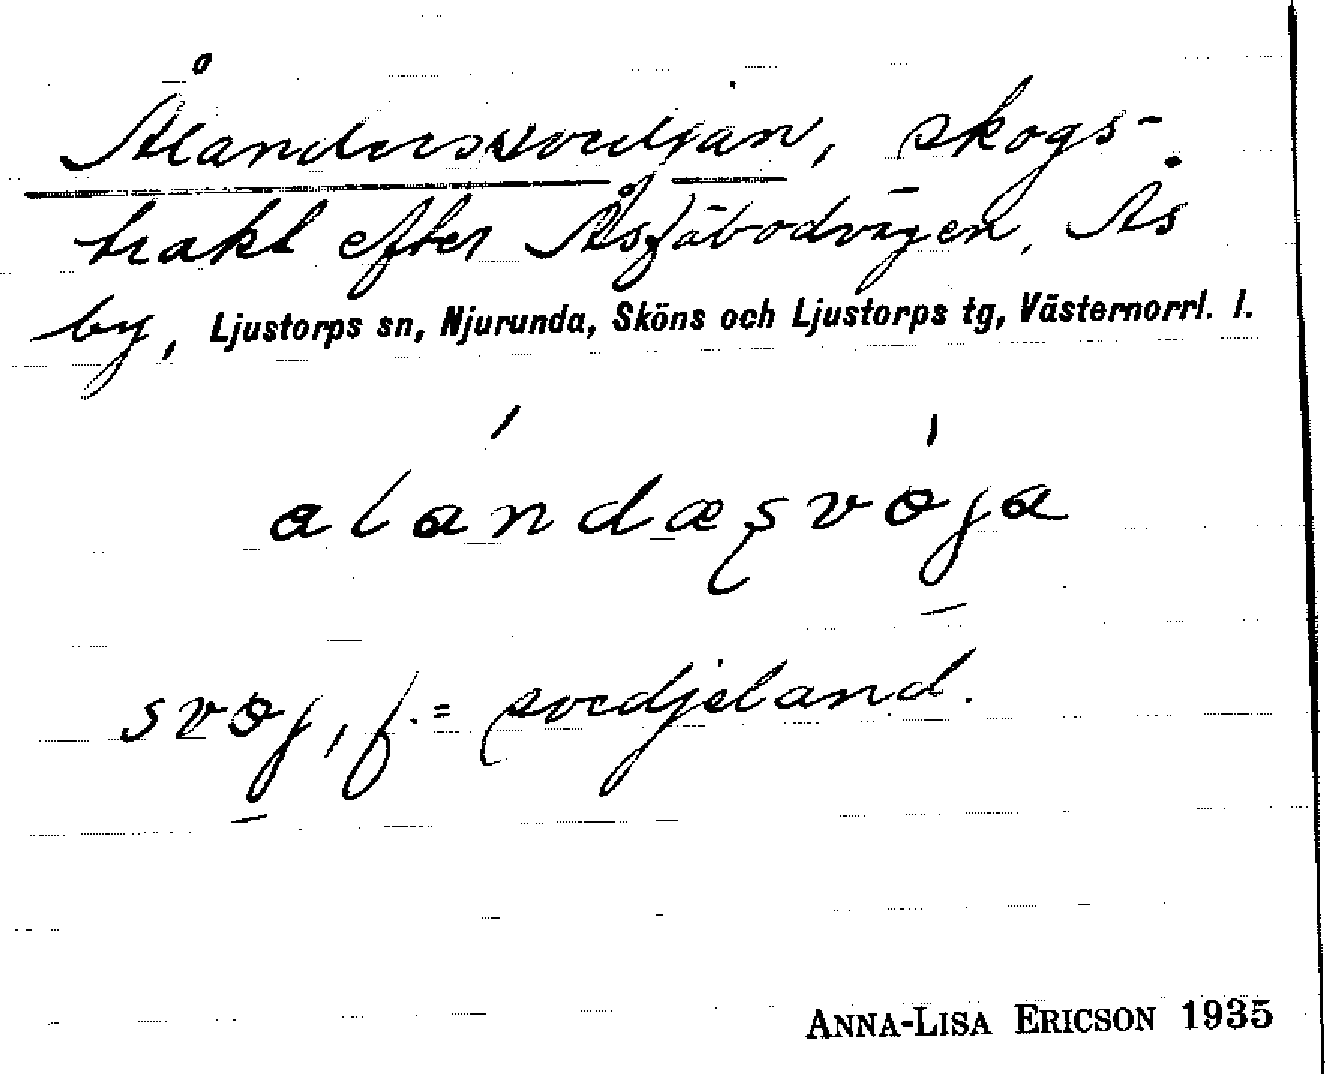 Ålanderssvedjan, skogs-
trakt efter Åsfäbodvägen, Ås
by, Ljustorps sn, Njurunda, Sköns och Ljustorps tg, Västernorrl. l.
alándæşvǿja
svøj, f. = svedjeland.
ANNA-LISA ERICSON 1935